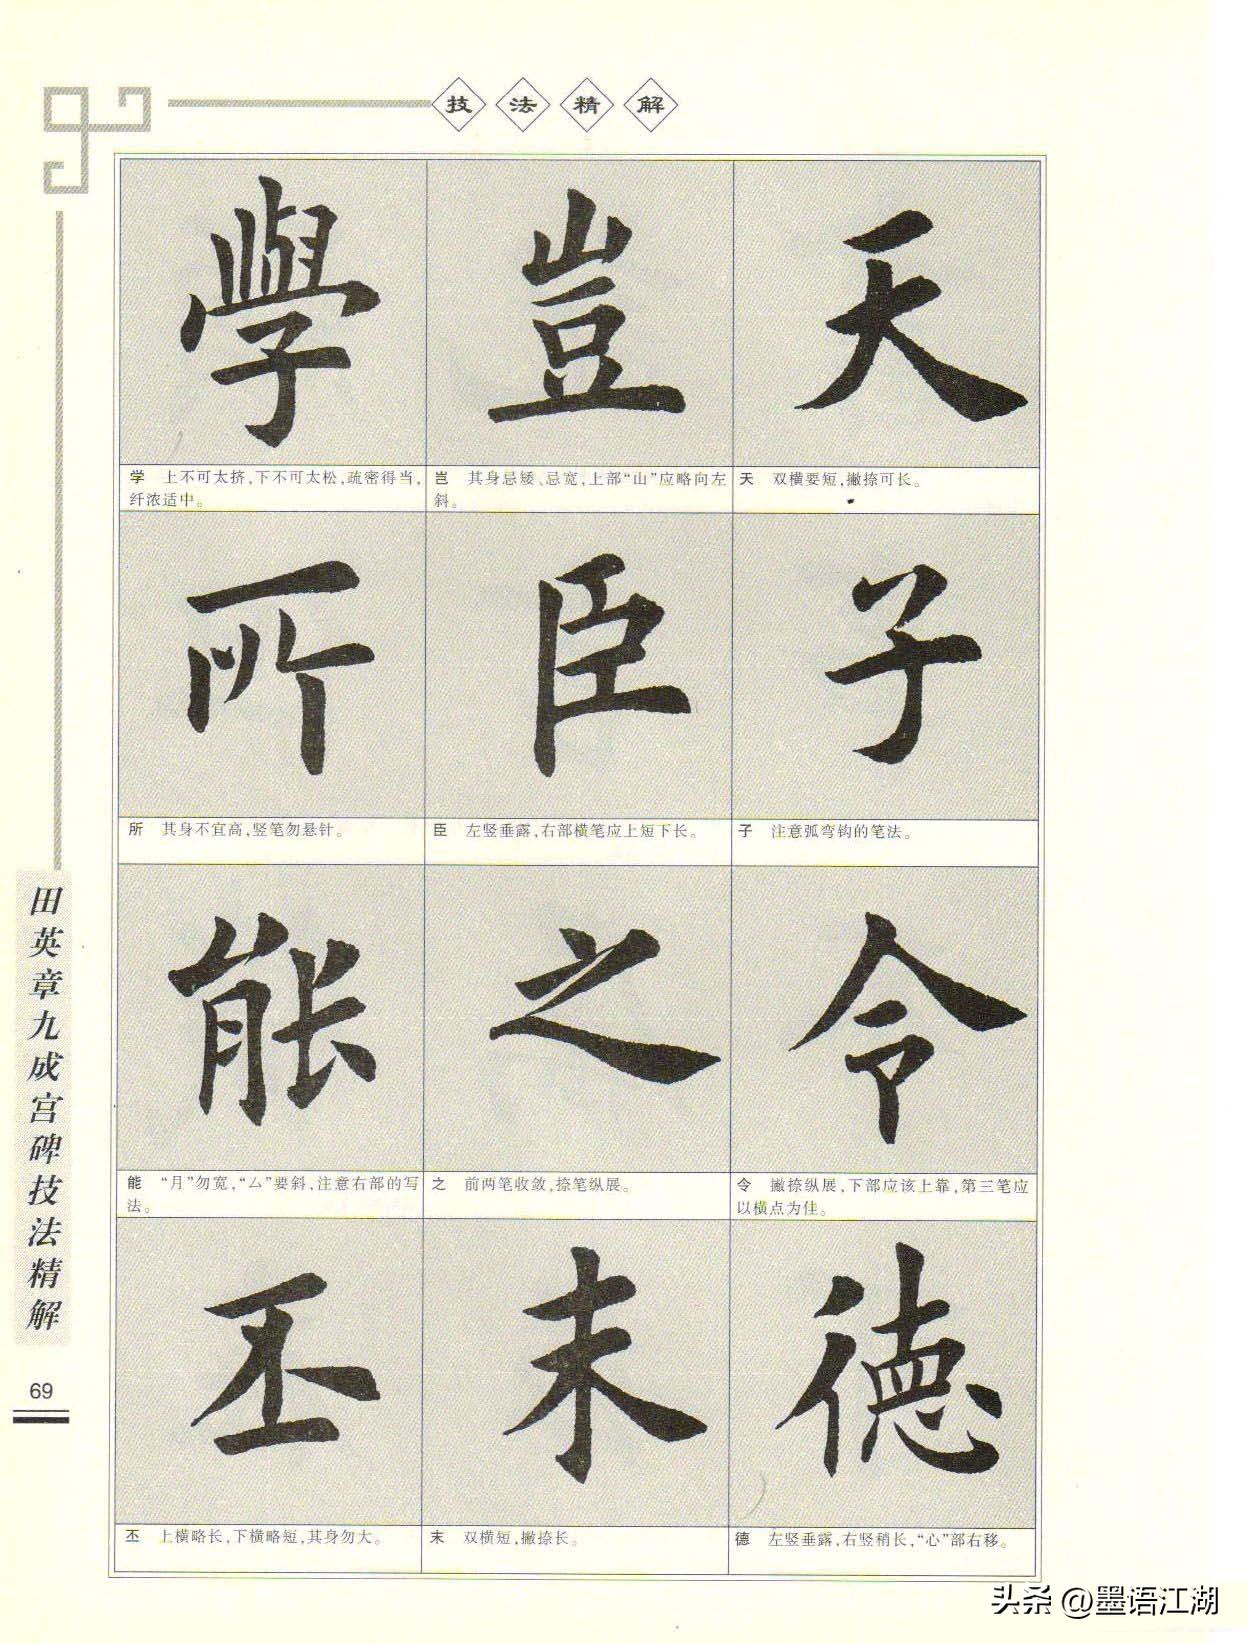 技法精解
學
豈
天
学 上不可太挤,下不可太松,疏密得当,
纤浓适中。
岂 其身忌矮、忌宽,上部“山”应略向左
斜。
天 双横要短,撇捺可长。
所
臣
子
所 其身不宜高,竖笔勿悬针。
臣 左竖垂露,右部横笔应上短下长。
子 注意弧弯钩的笔法。
能
之
令
能 “月”勿宽,“厶”要斜,注意右部的写
法。
之 前两笔收敛,捺笔纵展。
令 撇捺纵展,下部应该上靠,第三笔应
以横点为佳。
丕
末
德
丕 上横略长,下横略短,其身勿大。
末 双横短,撇捺长。
德 左竖垂露,右竖稍长,“心”部右移。
田英章九成宫碑技法精解
69
头条 @墨语江湖